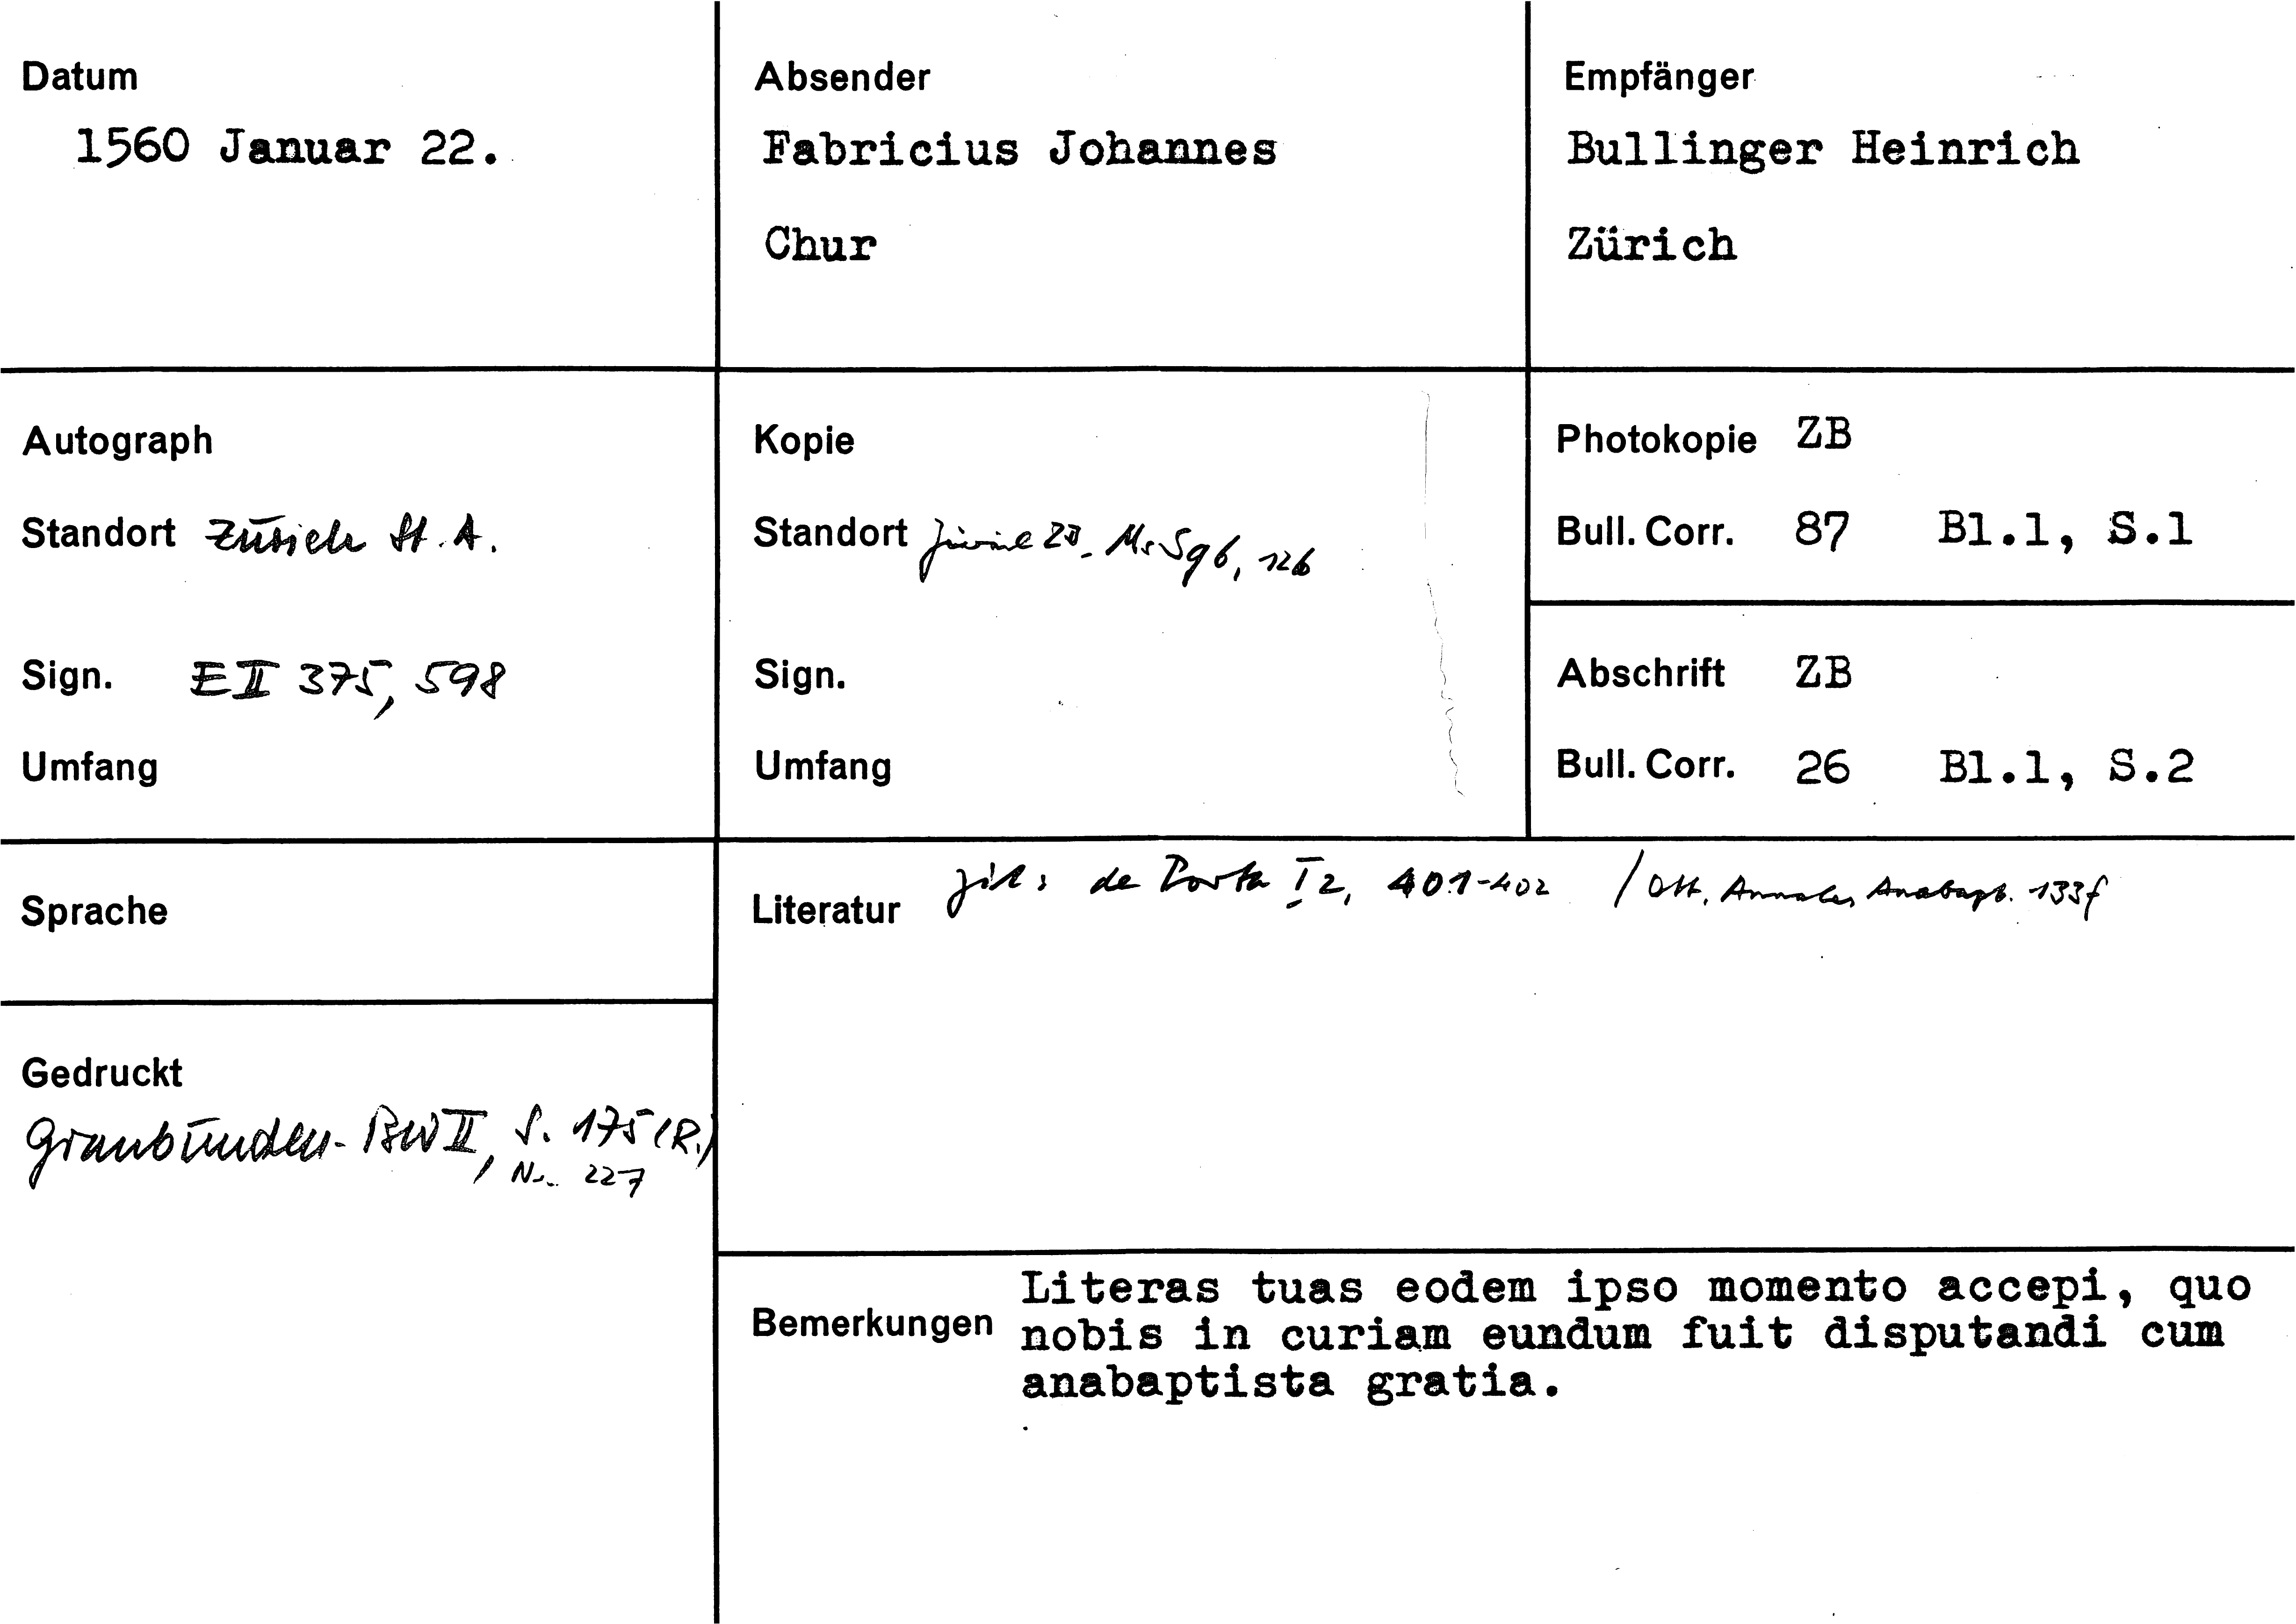 Datum
1560 Januar 22.
Absender
Fabricius Johannes
Chur
Empfänger
Bullinger Heinrich
Zürich
Autograph
Standort Zürich St. A.
Sign. E II 375, 598
Umfang
Kopie
Standort Zürich ZB, Ms S 96, 126
Sign.
Umfang
Photokopie ZB
Bull. Corr. 87 Bl.1, S.1
Abschrift ZB
Bull. Corr. 26 Bl.1, S.2
Sprache
Gedruckt
Graubünden-BW II, S. 175 (R.)
Nr. 227
Literatur zit: de Porta I 2, 401-402 / Ott, Annales Anabapt. 133f
Bemerkungen
Literas tuas eodem ipso momento accepi, quo
nobis in curiam eundum fuit disputandi cum
anabaptista gratia.